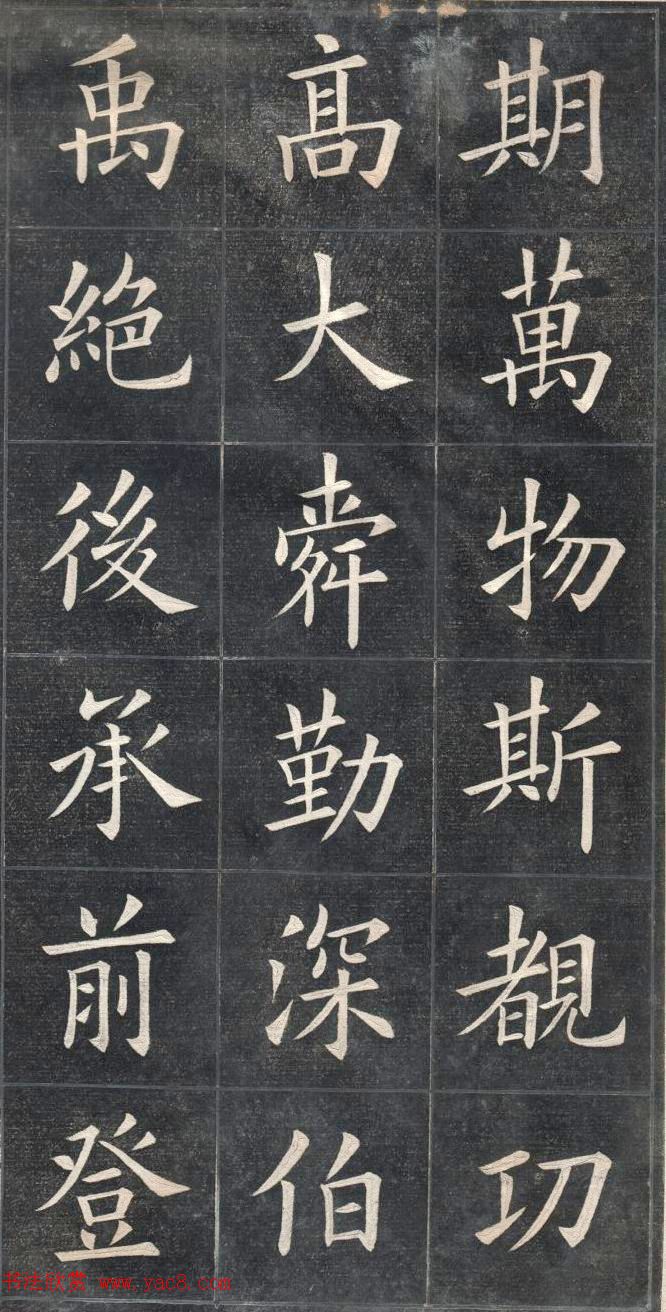 期萬物斯覩功
高大舜勤深伯
禹絕後承前登
书法欣赏 www.yac8.com